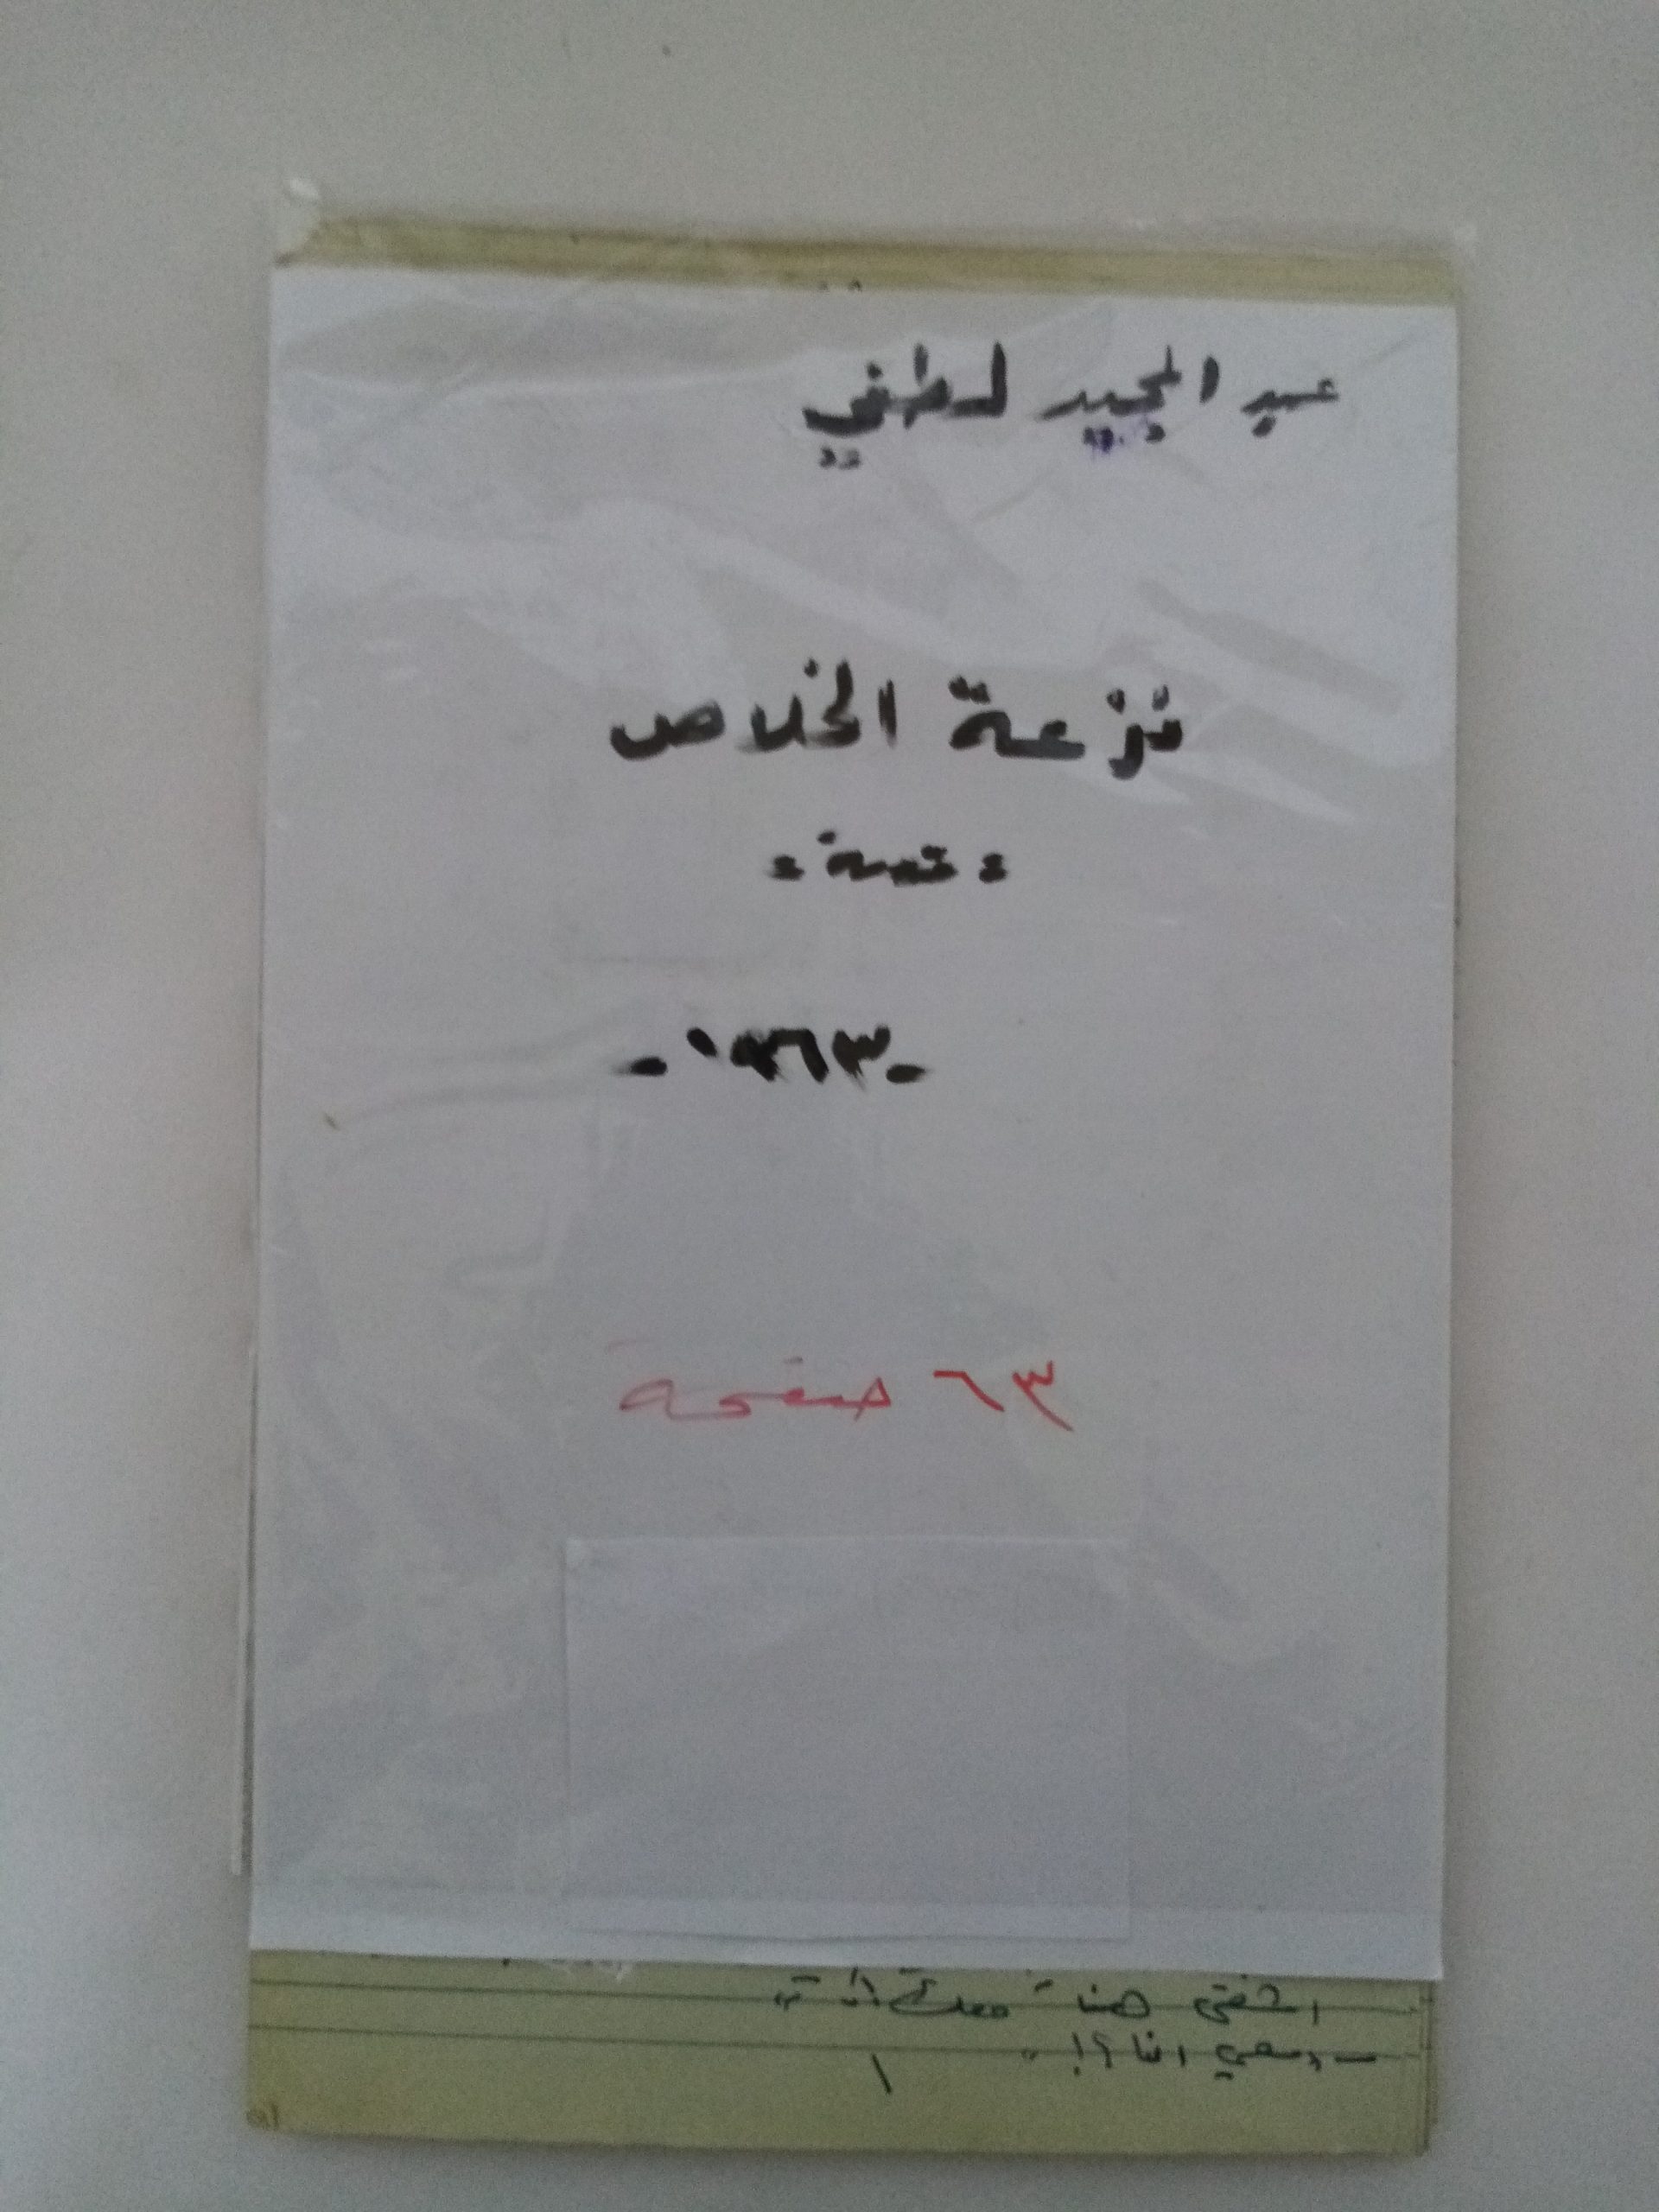 عبد المجيد لطفي
نزعة الخلاص
= قصة =
- ١٩٦٣ -
٦٣ صفحة
هنا
انا ؟!
١